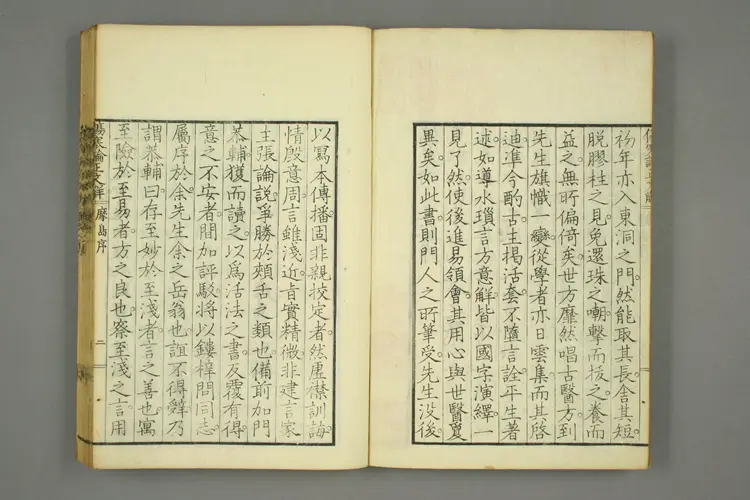 初年亦入東洞之門。然能取其長。舍其短。
脱膠柱之見。免還珠之嘲。擊而拔之。養而
益之。無所偏倚矣。世方靡然唱古醫方。到
先生旗幟一變。從學者亦日雲集。而其啓
迪準今酌古。主掲活套。不墮言詮。平生著
述。如導水瑣言。方意解。皆以國字演繹。一
見了然。使後進易領會。其用心與世醫夐
異矣。如此書。則門人之所筆受。先生没後
以寫本傳播。固非親挍定者。然虛懷訓誨
情殷意周。言雖淺近。旨實精微。非建言家
主張論説。爭勝於頰舌之類也。備前加門
恭輔獲而讀之。以爲活法之書。反覆有得
意之不安者。間加評駁。將以鏤梓問同志。
屬序於余。先生余之岳翁也。誼不得辭。乃
謂恭輔曰。存至妙於至淺者。言之善也。寓
至險於至易者。方之良也。察至淺之言。用
傷寒論正文解 摩島序 二